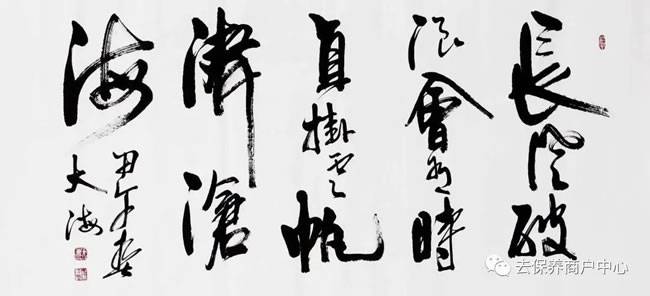 長風破
浪會有時
直掛雲帆
濟滄
海
甲午春
大海
去保养商户中心